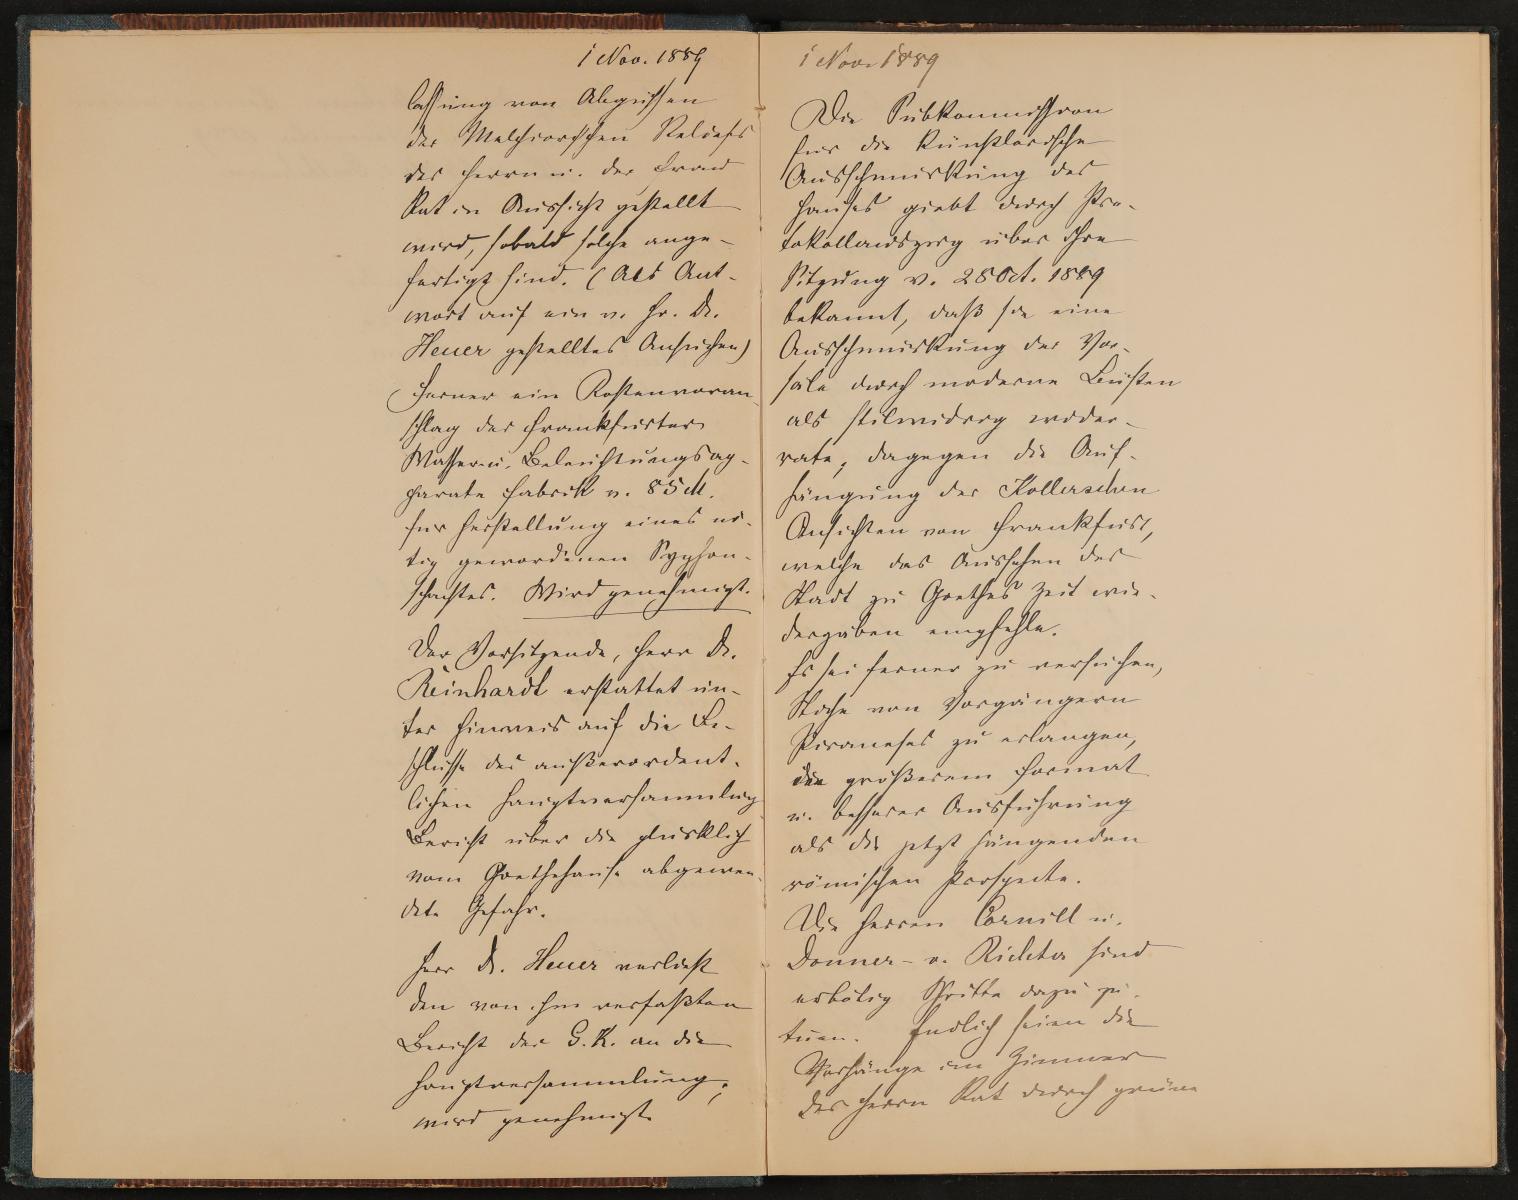 1 Nov. 1889
lassung von Abgüssen
der Melchiorschen Reliefs
des Herrn u. der Frau
Rat in Aussicht gestellt
wird, sobald solche ange-
fertigt sind. (Als Ant-
wort auf ein v. Hr. Dr.
Heuer gestelltes Ansuchen)
Ferner ein Kostenvoran-
schlag der Frankfurter
Wasser- u. Beleuchtungsap-
parate Fabrik v. 85 M.
für Herstellung eines nö-
tig gewordenen Syphon-
schachtes. Wird genehmigt.
Der Vorsitzende, Herr Dr.
Reinhardt erstattet un-
ter Hinweis auf die Be-
schlüsse der außerordent-
lichen Hauptversammlung
Bericht über die glücklich
vom Goethehause abgewen-
dete Gefahr.
Herr Dr. Heuer verliest
den von ihm verfaßten
Bericht der G. K. an die
Hauptversammlung;
wird genehmigt.
1 Nov. 1889
Die Subkommission
für die künstlerische
Ausschmückung des
Hauses giebt durch Pro-
tokollauszug über ihre
Sitzung v. 28 Oct. 1889
bekannt, daß sie eine
Ausschmückung der Vor-
säle durch moderne Büsten
als stilwidrig wider-
rate, dagegen die Auf-
hängung der Kollerschen
Ansichten von Frankfurt,
welche das Aussehen der
Stadt zu Goethes Zeit wie-
dergäben empfehle.
Es sei ferner zu versuchen,
Stiche von Vorgängern
Piraneses zu erlangen,
die größerem Format
u. besserer Ausführung
als die jetzt hängenden
römischen Prospecte.
Die Herren Cornill u.
Donner- v. Richter sind
erbötig Schritte dazu zu
tuen. Endlich seien die
Vorhänge im Zimmer
des Herrn Rat durch grüne